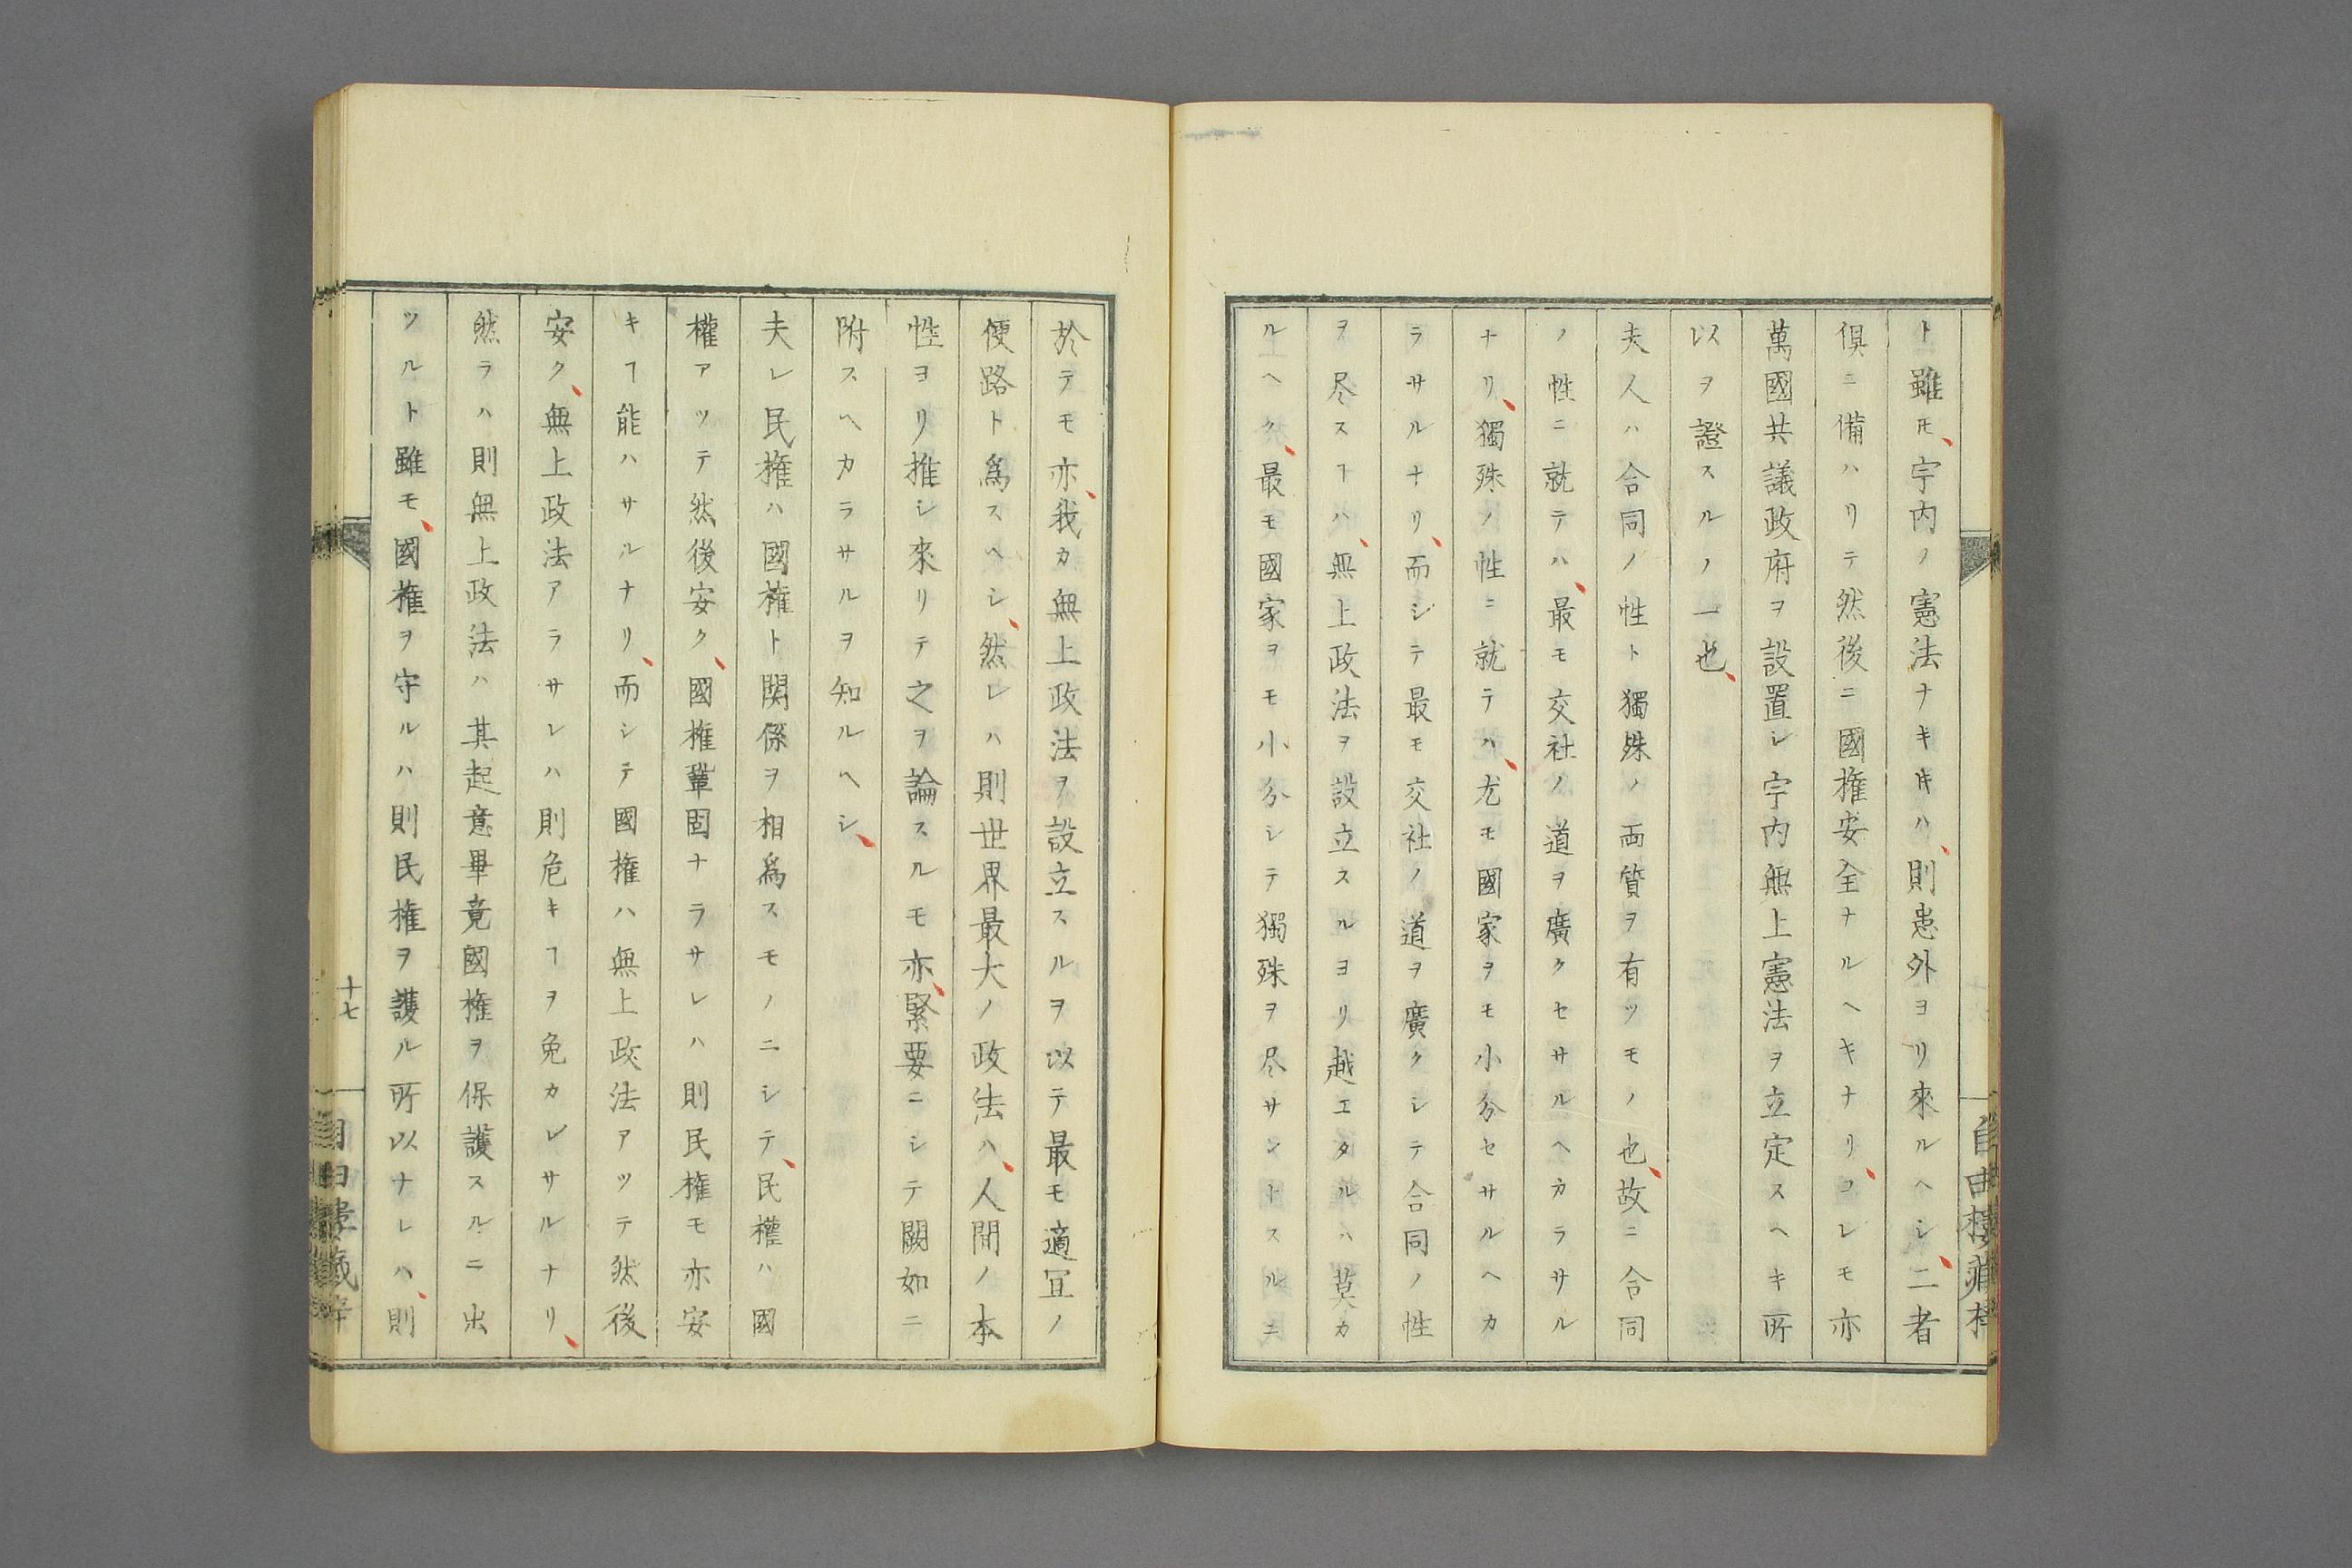 ト雖𪜈、宇内ノ憲法ナキ𬼀ハ、則患外ヨリ來ルヘシ、二者
倶ニ備ハリテ然後ニ國権安全ナルヘキナリ、コレモ亦
萬國共議政府ヲ設置シ宇内無上憲法ヲ立定スヘキ所
以ヲ證スルノ一也、
夫人ハ合同ノ性ト獨殊ノ両質ヲ有ツモノ也、故ニ合同
ノ性ニ就テハ、最モ交社ノ道ヲ廣クセサルヘカラサル
ナリ、獨殊ノ性ニ就テハ、尤モ國家ヲモ小分セサルヘカ
ラサルナリ、而シテ最モ交社ノ道ヲ廣クシテ合同ノ性
ヲ尽スヿハ、無上政法ヲ設立スルヨリ越エタルハ莫カ
ルヘク、最モ國家ヲモ小分シテ獨殊ヲ尽サントスルニ
自由樓藏梓
於テモ亦、我カ無上政法ヲ設立スルヲ以テ最モ適冝ノ
便路ト為スヘシ、然レハ則世界最大ノ政法ハ、人間ノ本
性ヨリ推シ來リテ之ヲ論スルモ亦、緊要ニシテ闕如ニ
附スヘカラサルヲ知ルヘシ、
夫レ民権ハ國権ト関係ヲ相為スモノニシテ、民權ハ國
權アツテ然後安ク、國権鞏固ナラサレハ則民権モ亦安
キヿ能ハサルナリ、而シテ國権ハ無上政法アツテ然後
安ク、無上政法アラサレハ則危キヿヲ免カレサルナリ、
然ラハ則無上政法ハ其起意畢竟國権ヲ保護スルニ出
ツルト雖モ、國権ヲ守ルハ則民権ヲ護ル所以ナレハ、則
十七
自由樓藏梓